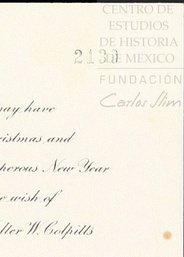 CENTRO DE
ESTUDIOS
DE HISTORIA
DE MEXICO
2133
FUNDACIÓN
Carlos Slim
may have
ristmas and
perous New Year
e wish of
lter W. Colpitts